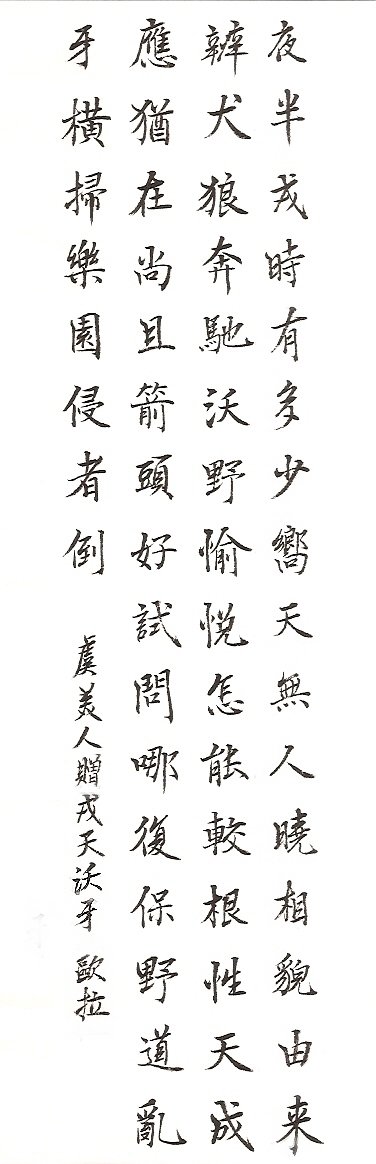 夜半戎時有多少嚮天無人曉相貌由来
辨犬狼奔馳沃野愉悅怎能較根性天成
應猶在尚且箭頭好試問哪復保野道亂
牙橫掃樂園侵者倒
虞美人贈戎天沃牙 歐拉